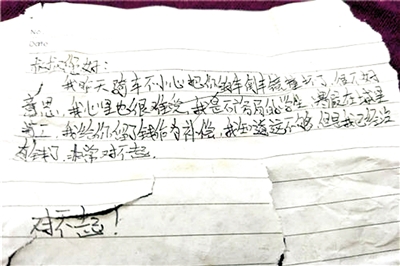 No.
Date
叔叔您好：
我昨天骑车不小心把你的车倒车镜撞坏了，很不好
意思，我心里也很难受，我是不舍得的学生，寒假在这里
打工，我给你留了钱作为补偿，我知道还不够，但是我已经没
有钱了，非常对不起，
对不起！